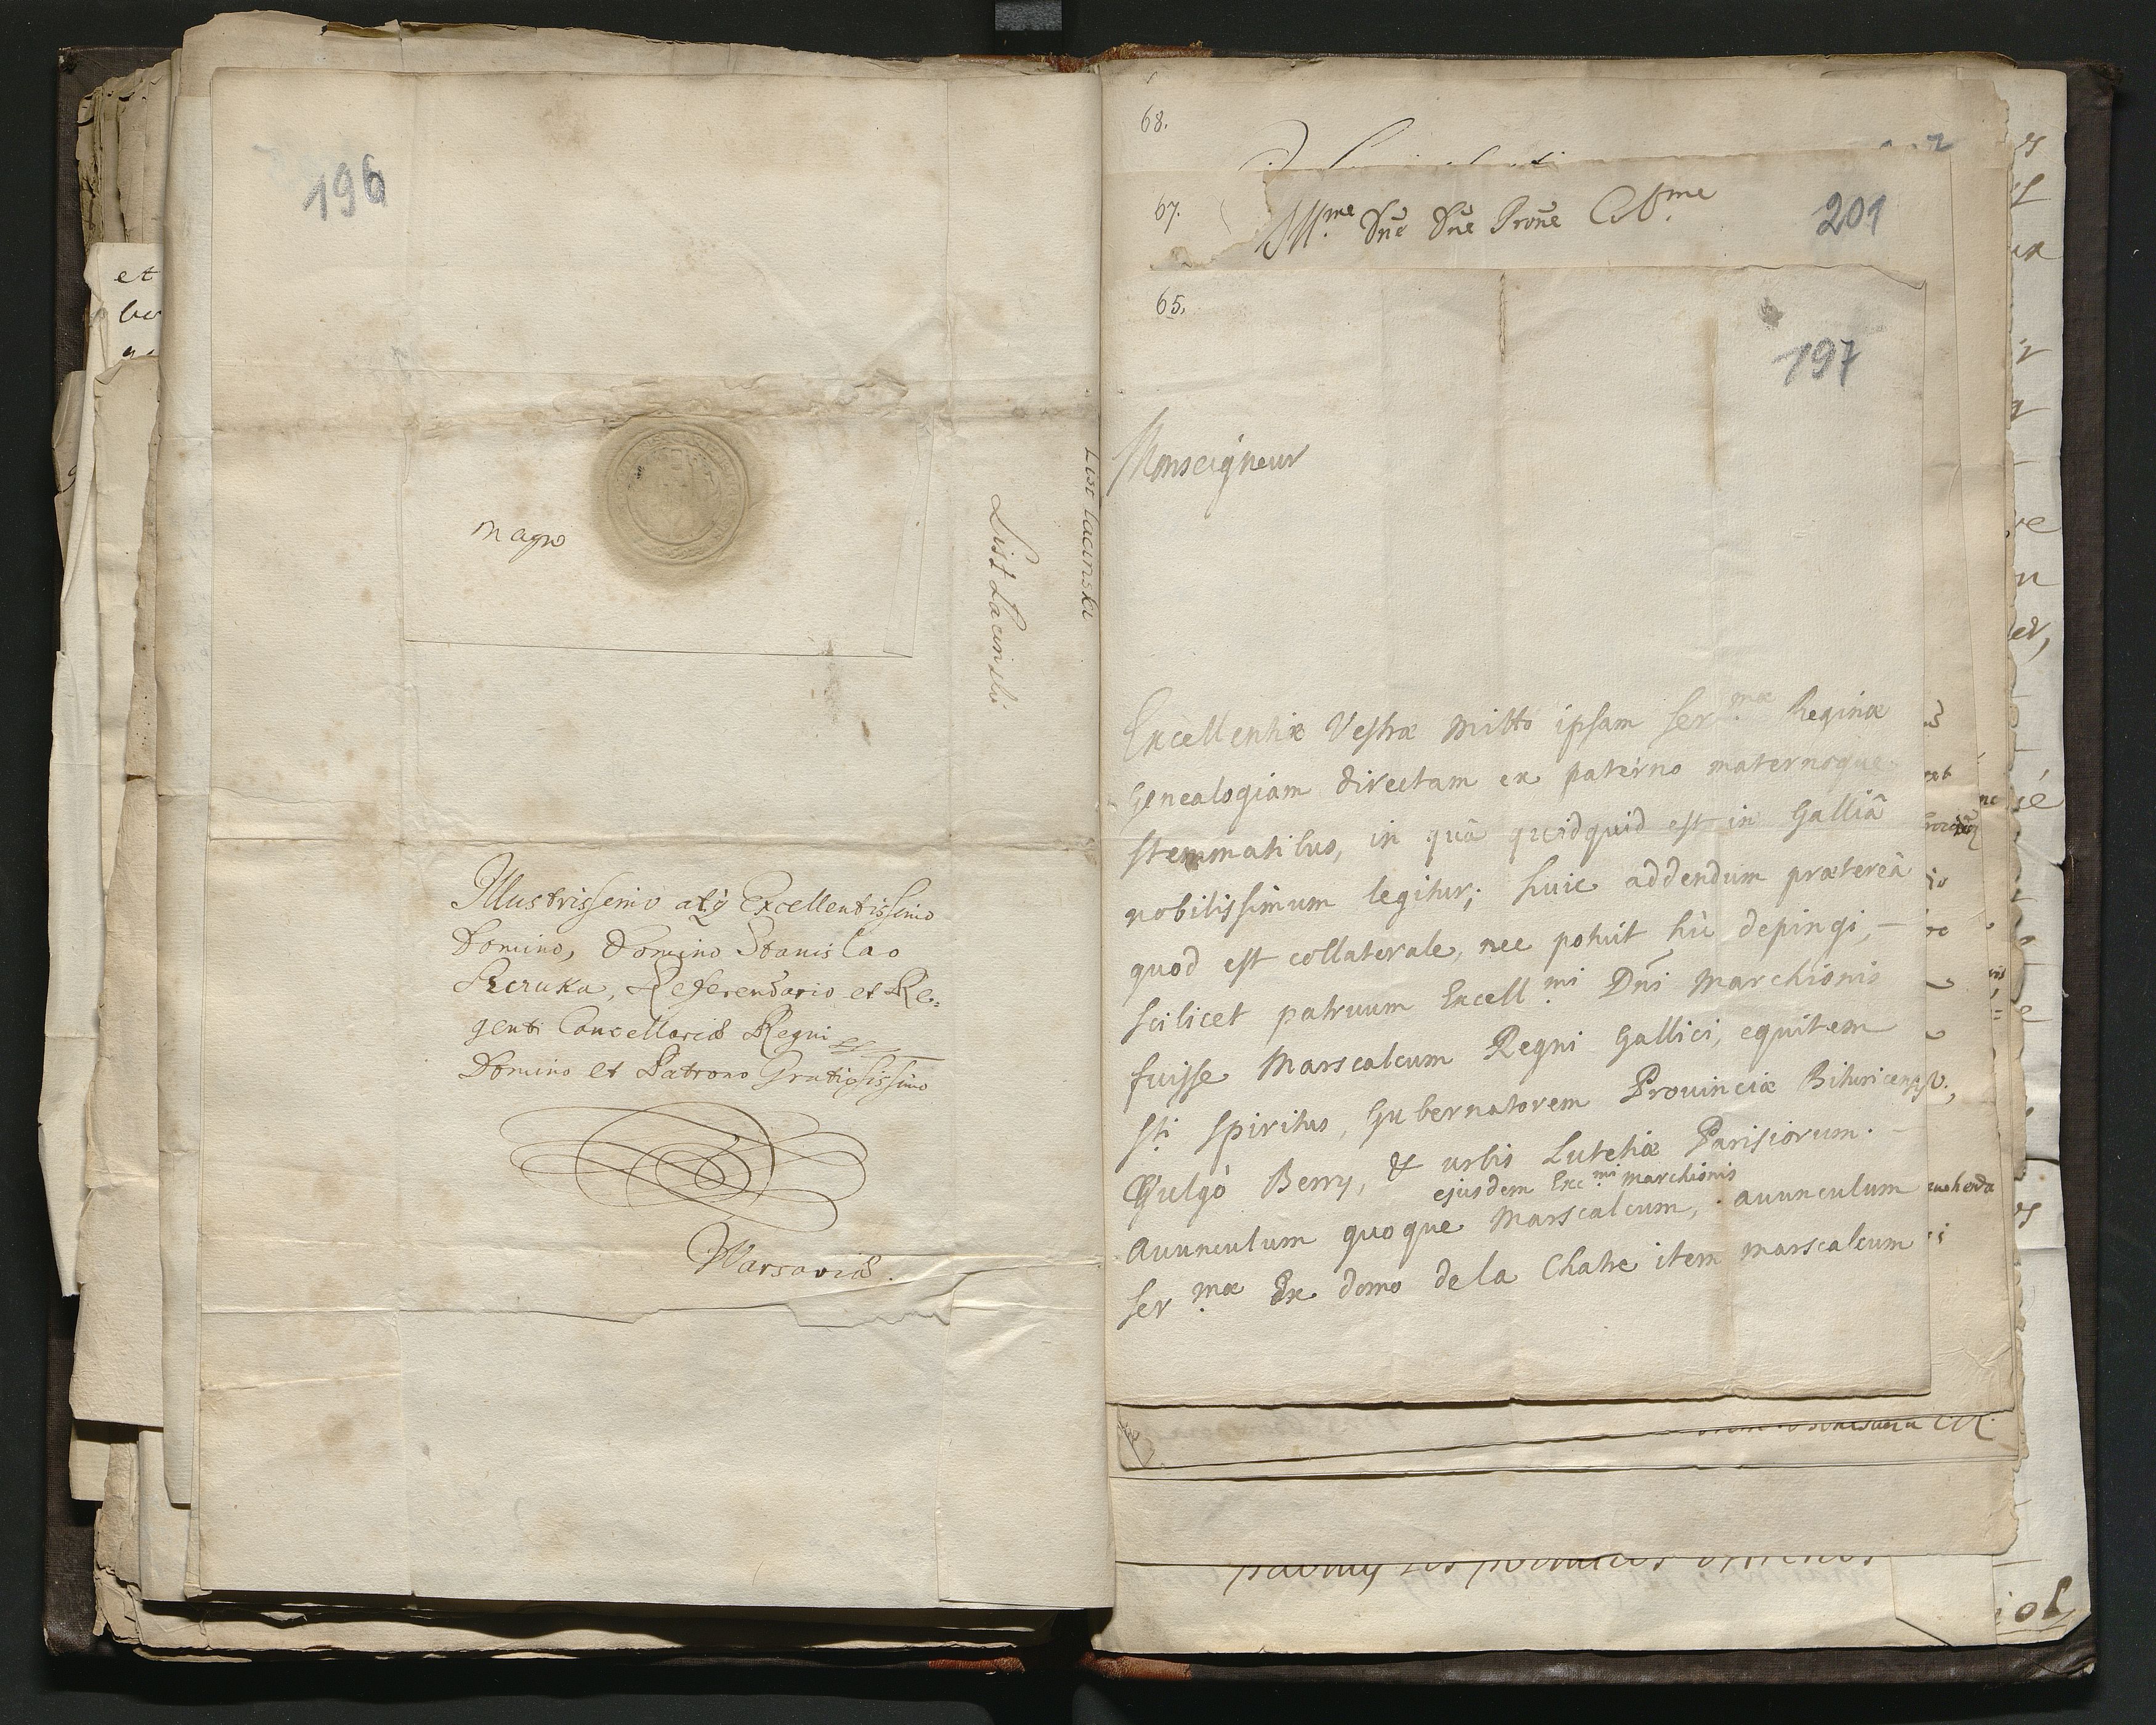 196
magno
List Łacinski
List Lacinski
Illustrissimo atq Excellentissimo
Domino, Domino Stanislao
Szczuka, Referendario et Re=
genti Cancellariæ Regni
Domino et Patrono Gratiosissimo
Warsaviæ.
68.
67.
Illme Dne Dne Prone Colme
201
65.
197
Monseigneur
Excellentiæ Vestræ mitto ipsam Sermæ Reginæ
Genealogiam directam ex paterno maternoque
stemmatibus, in quâ quidquid est in Galliâ
nobilissimum legitur; huic addendum prætereà
quod est collaterale, nec potuit hìc depingi, –
scilicet patruum Excellmi Dni Marchionis
fuisse Marscalcum Regni Gallici, equitem
Sti Spiritus, Gubernatorem Provinciæ Bituricensis,
Vulgò Berry, & urbis Lutetiæ Parisiorum. –
ejusdem Excmi marchionis
Avunculum quoque Marscalcum, avunculum
Sermæ Ex domo de la Chatre item marscalcum